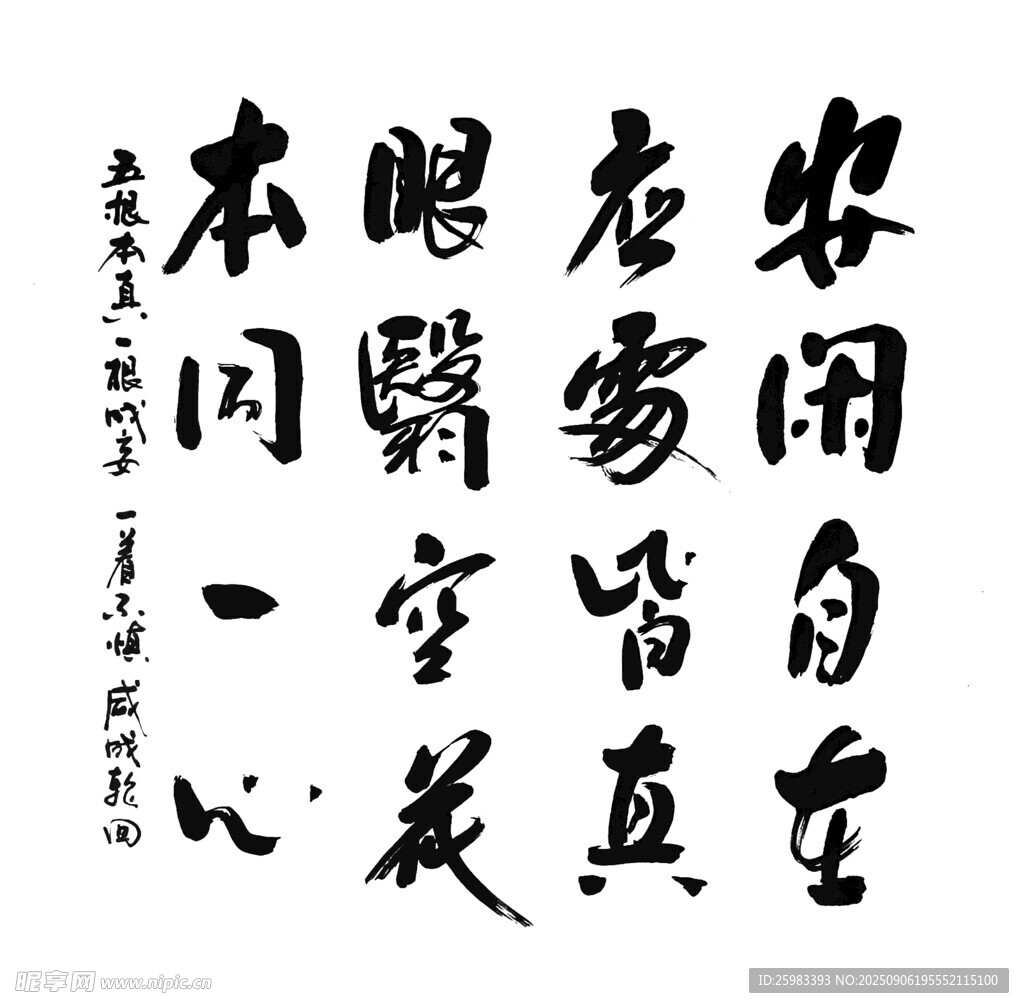 安闲自在
应處皆真
眼翳空花
本同一心
五根本真一根成妄一着不慎咸成轮回
昵享网 www.nipic.cn
ID:25983393 NO:20250906195552115100